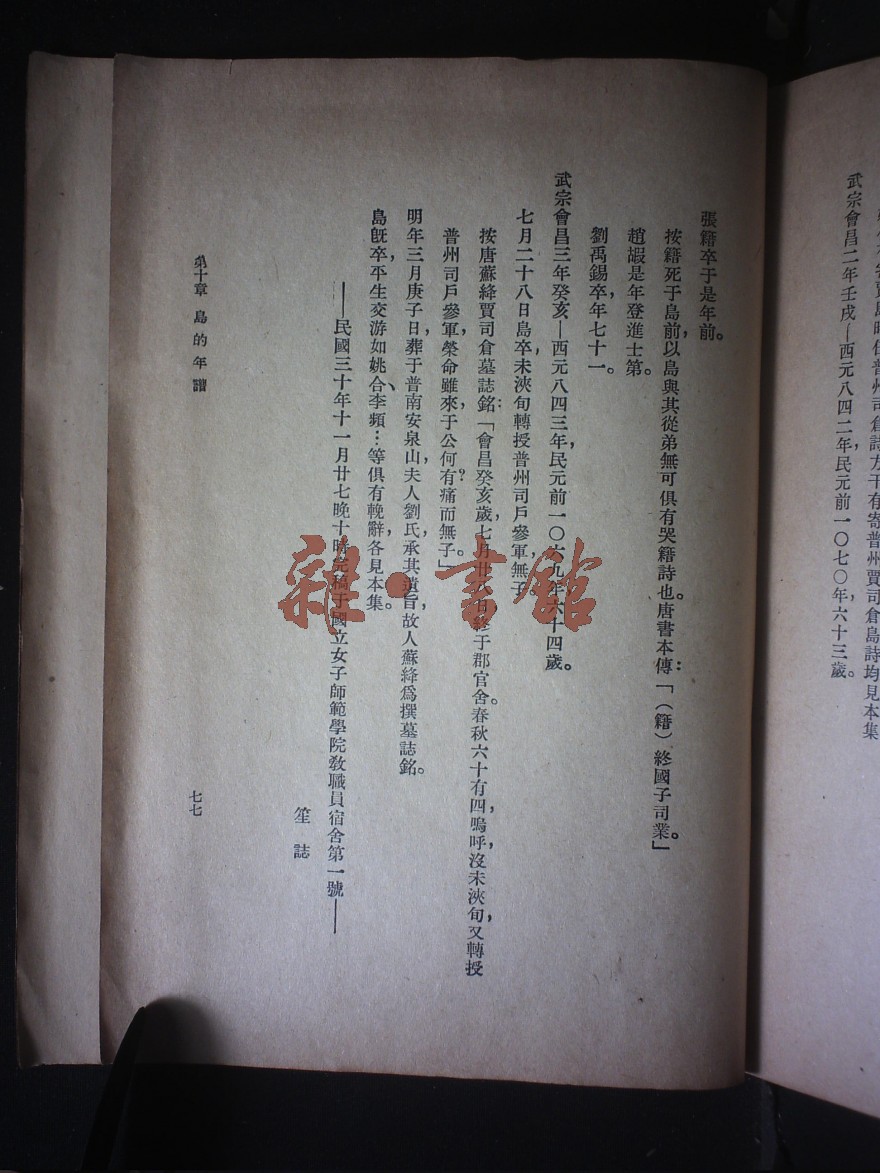 武宗會昌二年壬戌—西元八四二年,民元前一〇七〇年,六十三歲。
張籍卒于是年前。
按籍死于島前,以島與其從弟無可俱有哭籍詩也。唐書本傳:「(籍)終國子司業。」
趙嘏是年登進士第。
劉禹錫卒,年七十一。
武宗會昌三年癸亥—西元八四三年,民元前一〇六九年,六十四歲。
七月二十八日,島卒,未浹旬,轉授普州司戶參軍,無子。
按唐蘇絳賈司倉墓誌銘:「會昌癸亥歲,七月廿八日,終于郡官舍。春秋六十有四,嗚呼,沒未浹旬,又轉授
普州司戶參軍,榮命雖來,于公何有?痛而無子。」
明年三月庚子日,葬于普南安泉山,夫人劉氏,承其遺旨,故人蘇絳爲撰墓誌銘。
島旣卒,平生交游如姚合、李頻…等俱有輓辭,各見本集。
——民國三十年十一月廿七晚十時完稿于國立女子師範學院教職員宿舍第一號——
笙誌
第十章 島的年譜
七七
雜·書館